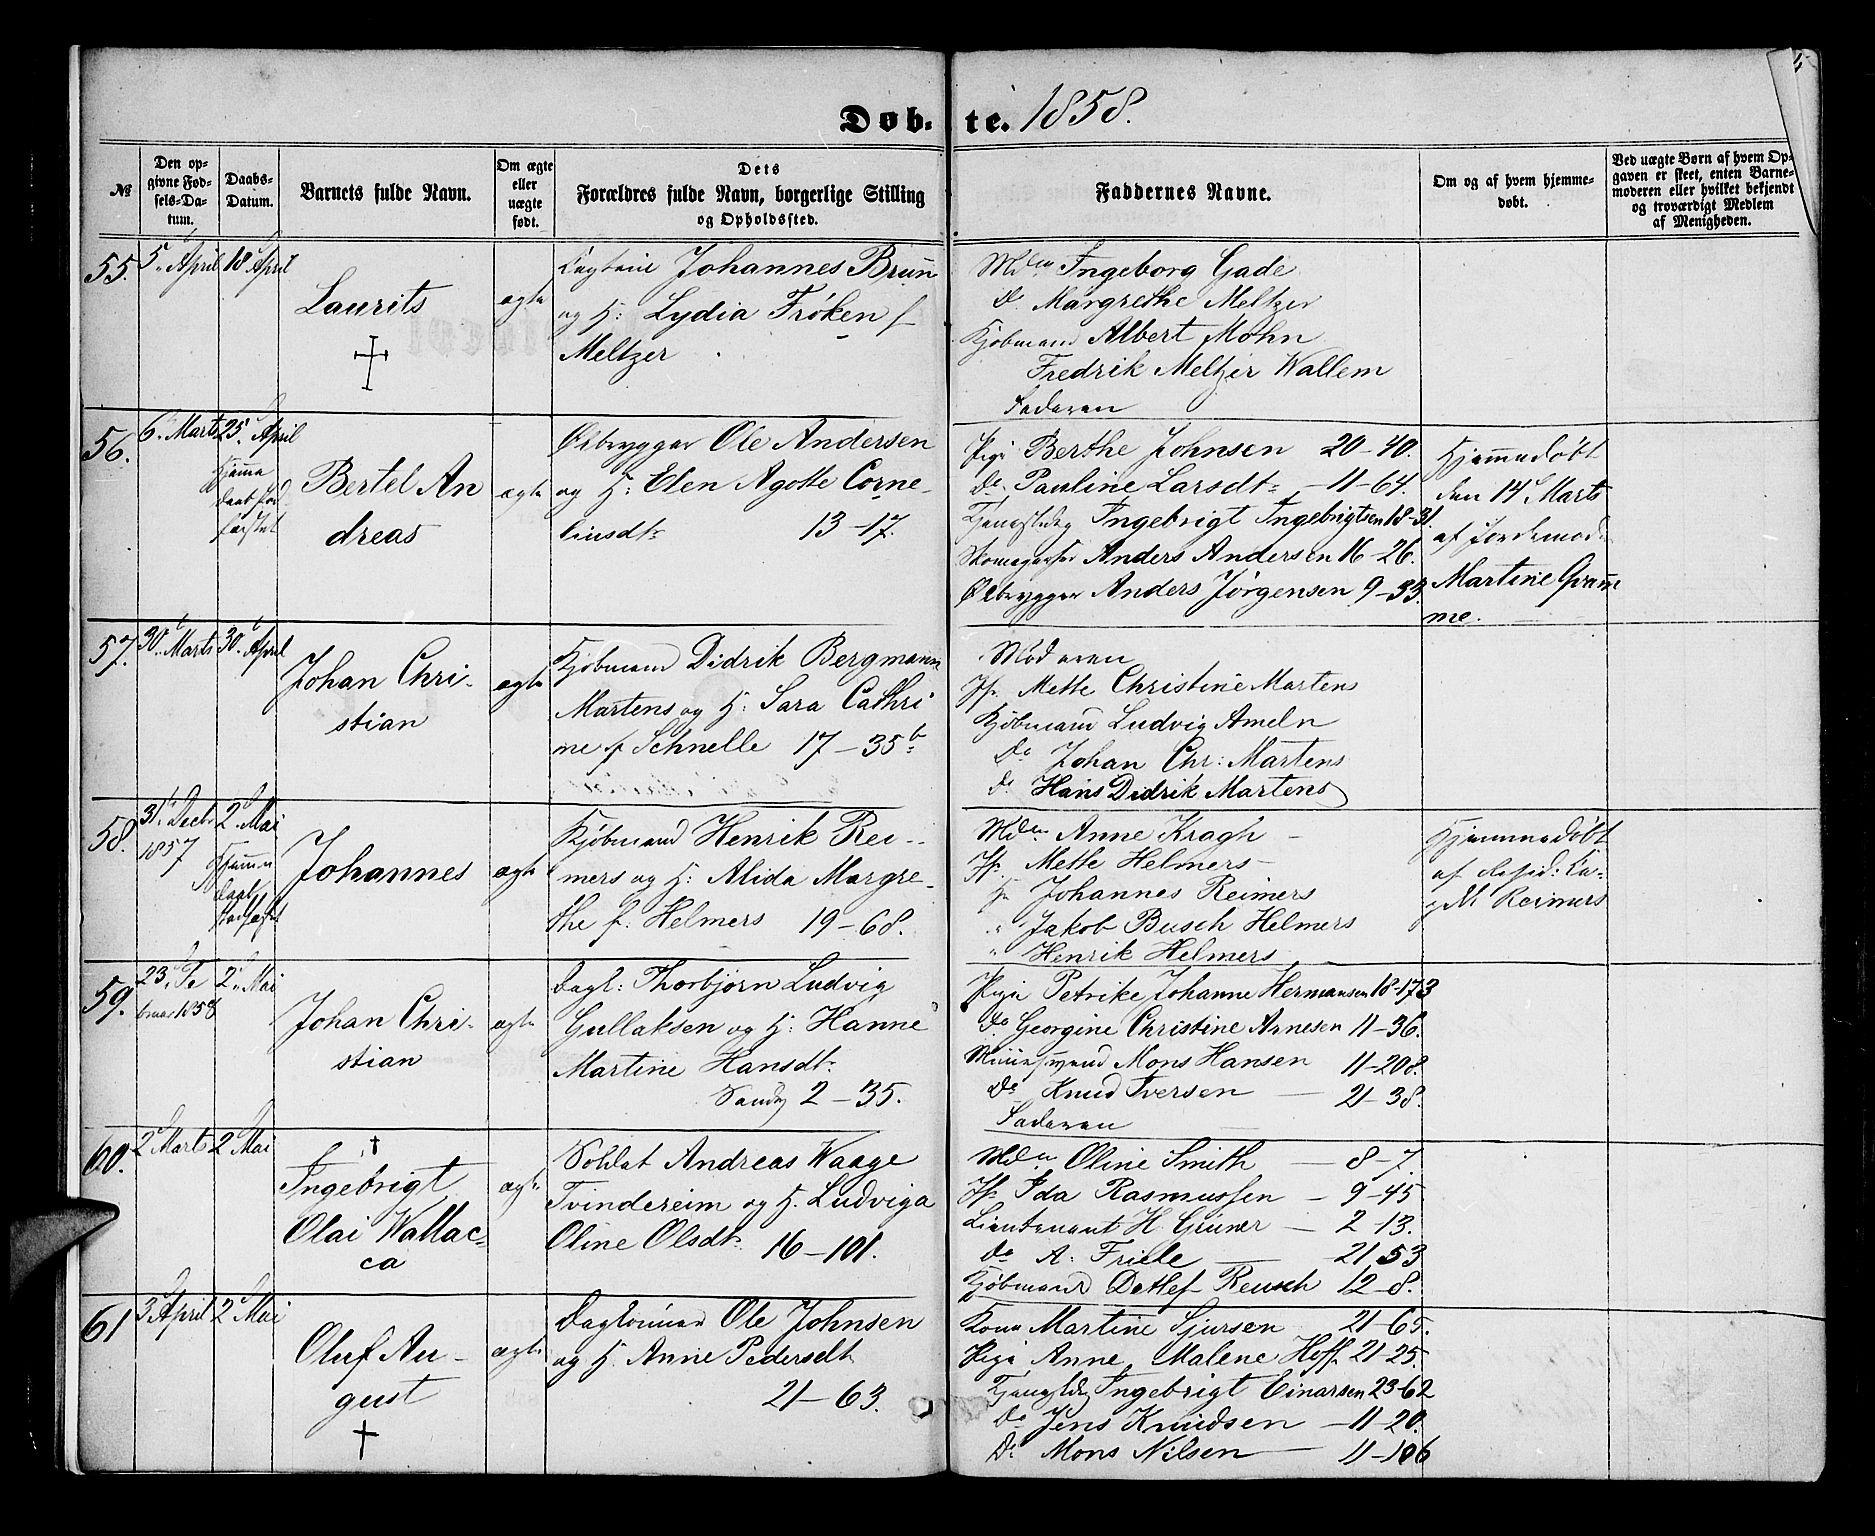 Døb-te. 1858.
№
Den opgivne Fødsels-Datum.
Daabs-Datum.
Barnets fulde Navn.
Om ægte eller uægte født.
Dets Forældres fulde Navn, borgerlige Stilling og Opholdssted.
Faddernes Navne.
Om og af hvem hjemmedøbt.
Ved uægte Børn af hvem Opgaven er skeet, enten Barnemoderen eller hvilket bekjendt og troværdigt Medlem af Menigheden.
55. 5 April 18 April
Laurits
ægte
Johannes Brun
og H: Lydia Frøken f
Meltzer
Mdm Ingeborg Gade
Do Margrethe Meltzer
Kjøbmand Albert Mohn
Fredrik Meltzer Wallem
Faderen
56. 6 Marts 25 April
Hjemme
daab
Bertel An
dreas
ægte
Ølbrygger Ole Andersen
og H: Elen Agotte Corne
liusdtr 13-17.
Pige Berthe Johnsen 20-40.
Do Pauline Larsdtr - 11-64.
Ingebrigt Ingebrigtsen 18-31.
Skomager Anders Andersen 16-26.
Ølbrygger Anders Jørgensen 9-33.
Hjemmedøbt
den 14 Marts
af Jordemoder
Martine Gram
me.
57. 30 Marts 30 April
Johan Chri-
stian
ægte
Kjøbmand Didrik Bergmann
Martens og H: Sara Cathri
ne f Schnelle 17-35b
Moderen
Jfr. Mette Christine Martens
Kjøbmand Ludvig Ameln
Do Johan Chr: Martens
do Hans Didrik Martens
58. 31 Decbr 2 Mai
1857 Hjemme
daab
Johannes
ægte
Kjøbmand Henrik Rei-
mers og H: Alida Margre-
the f. Helmers 19-68.
Mdm Anne Kragh -
Jfr. Mette Helmers -
Hr Johannes Reimers
" Jakob Busch Helmers
" Henrik Helmers
Hjemmedøbt
af resid: Ca-
Reimers
59. 23 Fe 2 Mai
bruar 1858
Johan Chri-
stian
ægte
Dagl: Thorbjørn Ludvig
Gullaksen og H: Hanne
Martine Hansdtr
2-35.
Pige Petrike Johanne Hermansen 18-173
Do Georgine Christine Arnesen 11-36.
Mons Hansen 11-208.
Do Knud Iversen - 21-38.
Faderen
60. 2 Marts 2 Mai
Ingebrigt
Olai Wallac-
ca
ægte
Soldat Andreas Waage
Tvindereim og H. Ludviga
Oline Olsdtr 16-101.
Mdm Oline Smith - 8-7.
Jfr Ida Rasmussen - 9-45
Lieutenant H. Grüner - 2-13.
Do A. Friele - 21 53
Kjøbmand Detlef Reusch 12-8.
61 3 April 2 Mai
Oluf Au-
gust
ægte
Ole Johnsen
og H. Anne Pedersdtr
21-63.
Kone Martine Sjursen 21-65.
Pige Anne Malene Hoff 21-25.
Ingebrigt Einarsen 23-62
Do Jens Knudsen - 11-20.
Do Mons Nilsen - 11-106